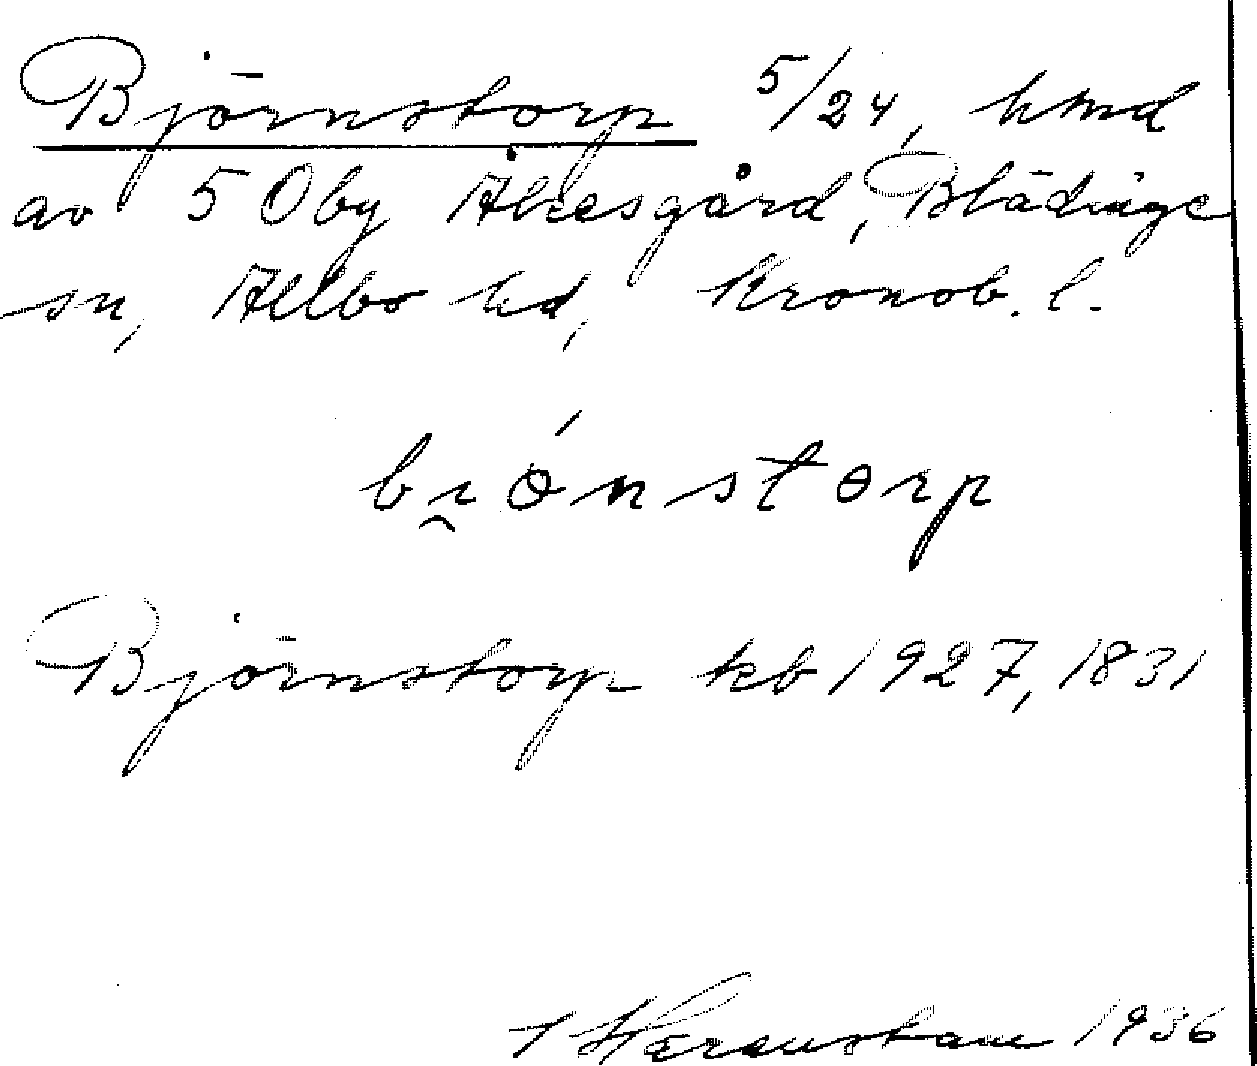 Björnstorp 5/24, hmd
av 5 Oby Åkesgård, Blädinge
sn, Allbo hd, Kronob. l.
bi̯ónstorp
Björnstorp kb 1927, 1831
1936